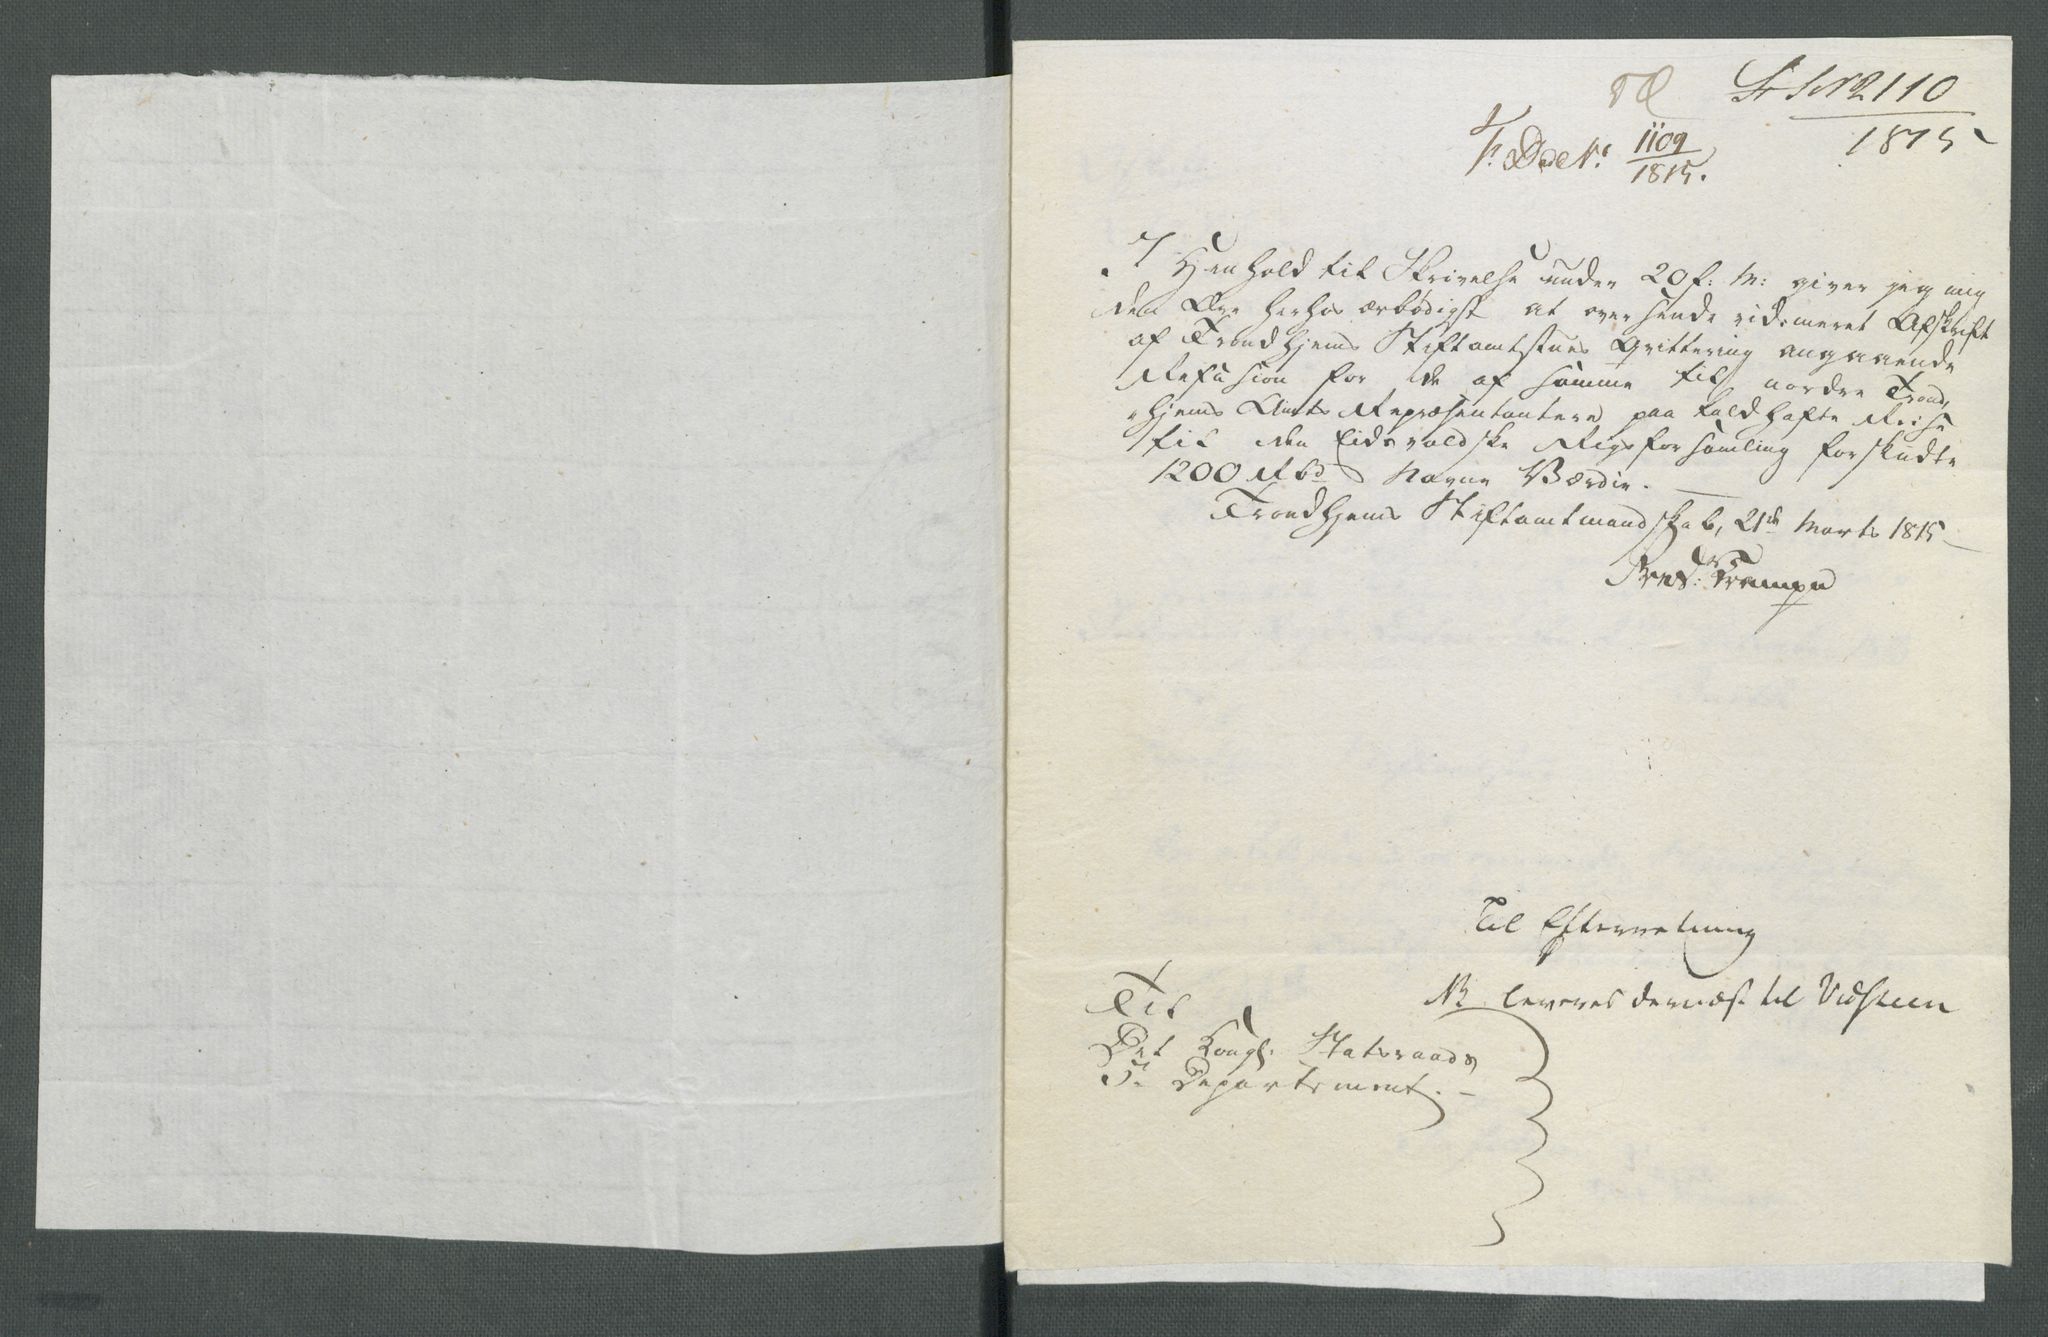 2110
1815
1109
1815.
I Henhold til Skrivelse under 20 f: M: giver jeg mig
den Ære herhos ærbødigst at oversende vidimeret Afskrift
af Trondhjems Stiftamtstues Qvittering angaaende
Refusion for de af samme til nordre Trond,
hjems Amts Repræsentantere paa havdhafte Reise
til den Eidsvoldske Rigsforsamling forskudte
1200 Rbd Navne Værdie.
Trondhjems Stiftamtmandskab, 21de Marts 1815
Fred: Trampe
Til Efterretning
NB leveres dernæst til Vidsteen
Til
Det Kongl. Statsraads
5te Departement.